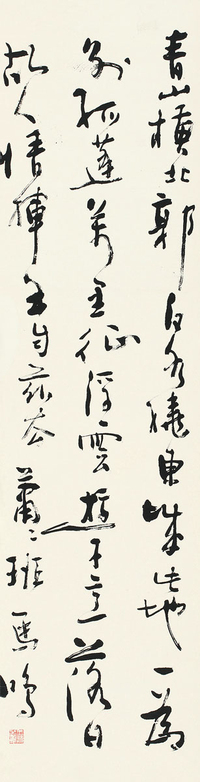 青山橫北郭白水繞東城此地一為
別孤蓬萬里征浮雲遊子意落日
故人情揮手自茲去蕭〻班馬鳴